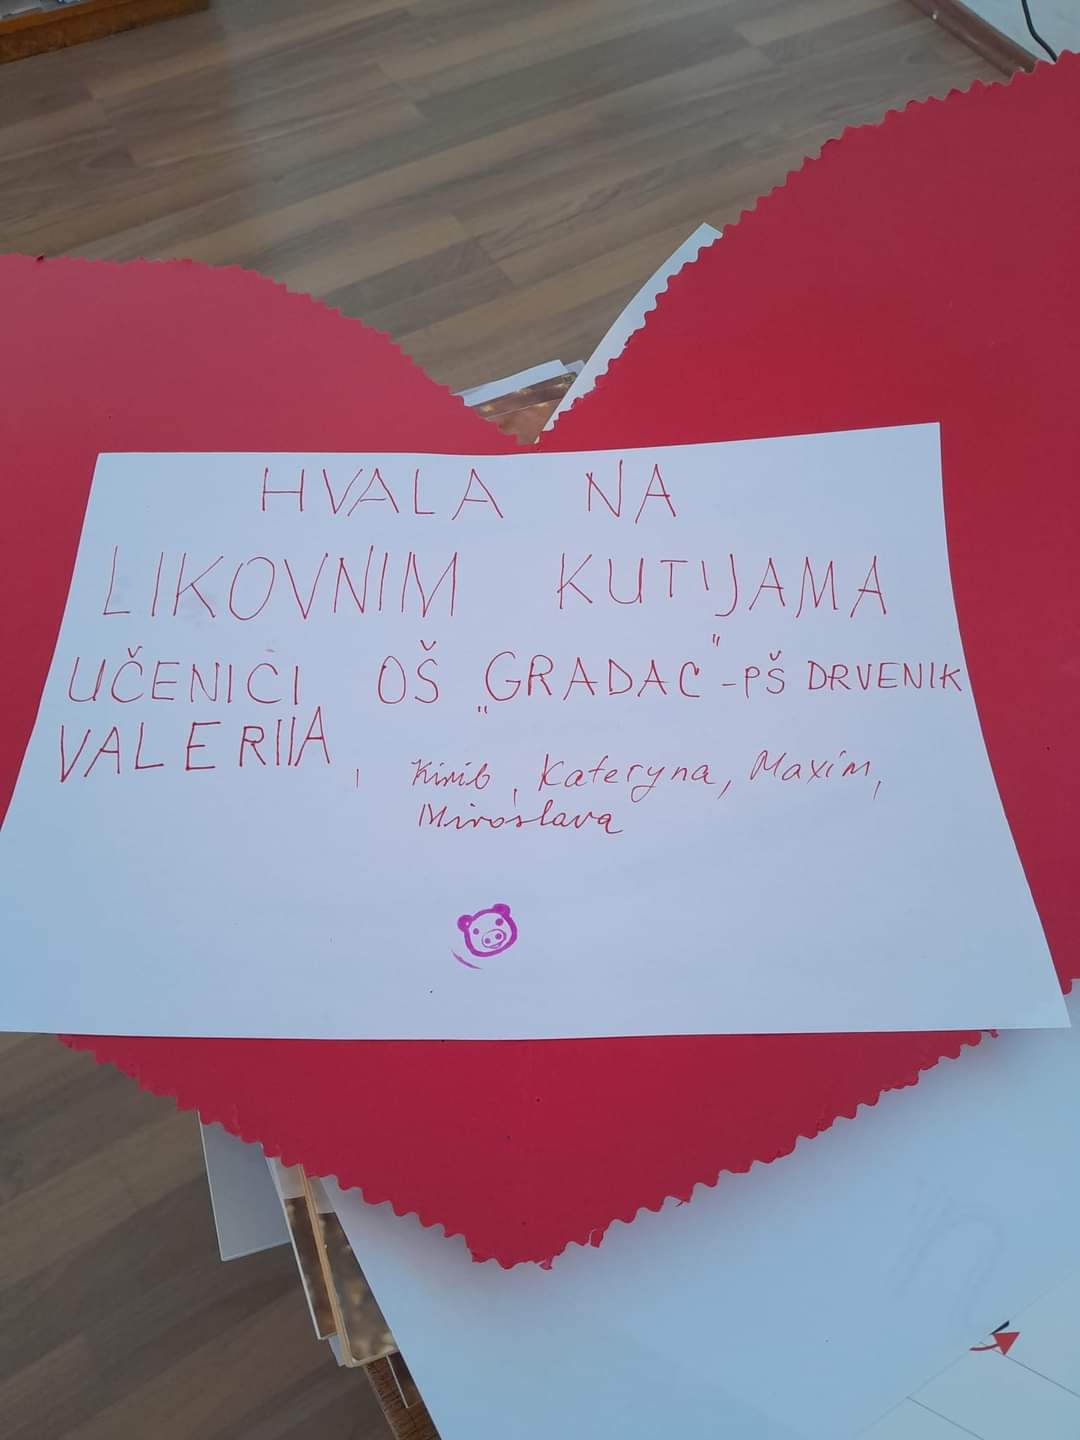 HVALA NA
LIKOVNIM KUTIJAMA
UČENICI OŠ „GRADAC" - PŠ DRVENIK
VALERIIA, Kateryna, Maxim,
Miroslava